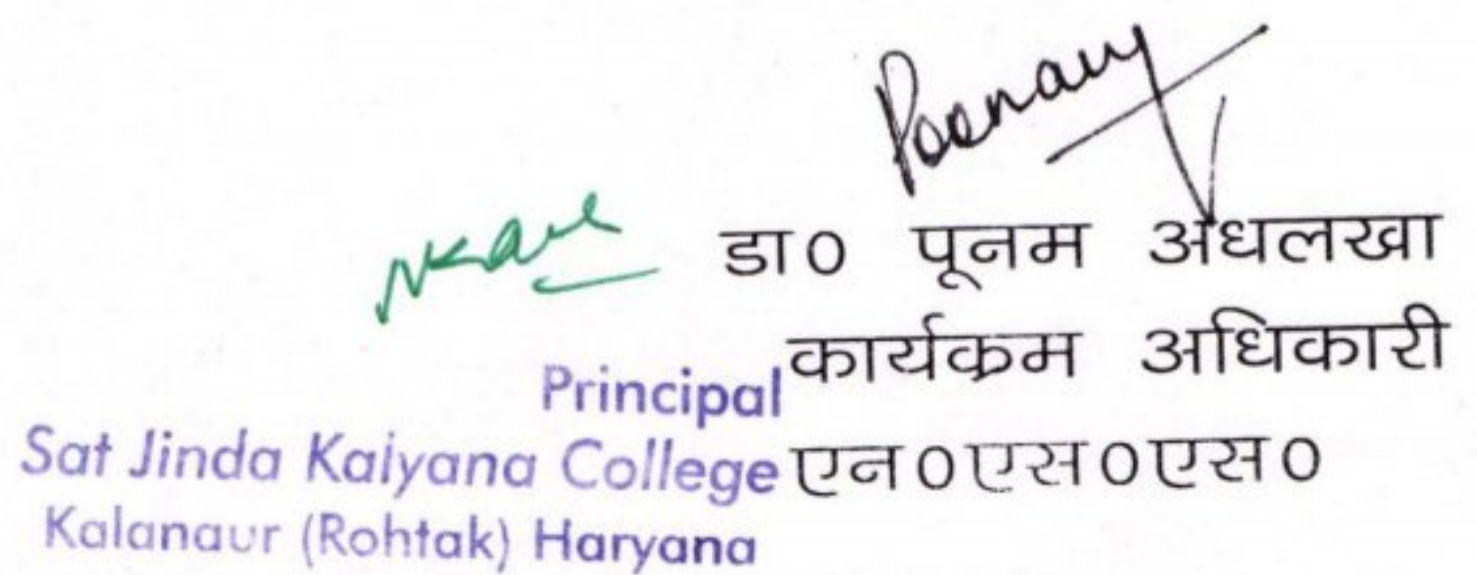 Poonam
डा0 पूनम अंधलखा
कार्यक्रम अधिकारी
एन0एस0एस0
Principal
Sat Jinda Kalyana College
Kalanaur (Rohtak) Haryana